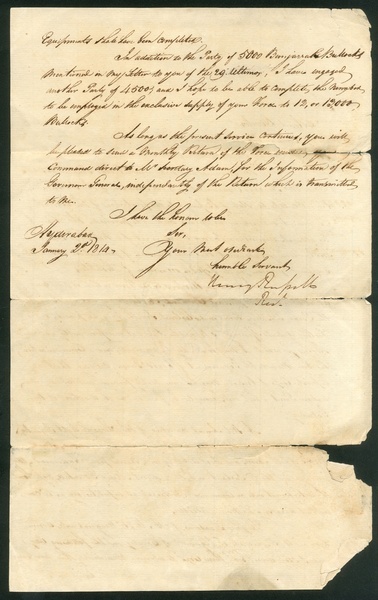 Equipments shall have been completed.
In addition to the Party of 5000 Bunjarrah Bullocks
mentioned in my Letter to you of the 29 Ultimo, I have engaged
another Party of 4,500; and I hope to be able to complete the Number
to be employed in the exclusive supply of your Force to 12, or 12,000
Bullocks.
As long as the present Service continues, you will
be pleased to send a Monthly Return of the Force under your
Command direct to Mr. Secretary Adam, for the information of the
Governor General, independently of the Return which is transmitted
to me.
I have the honor to be
Hyderabad Sir,
January 2d. 1814. Your most obedient
humble Servant
Henry Russell
Rest.